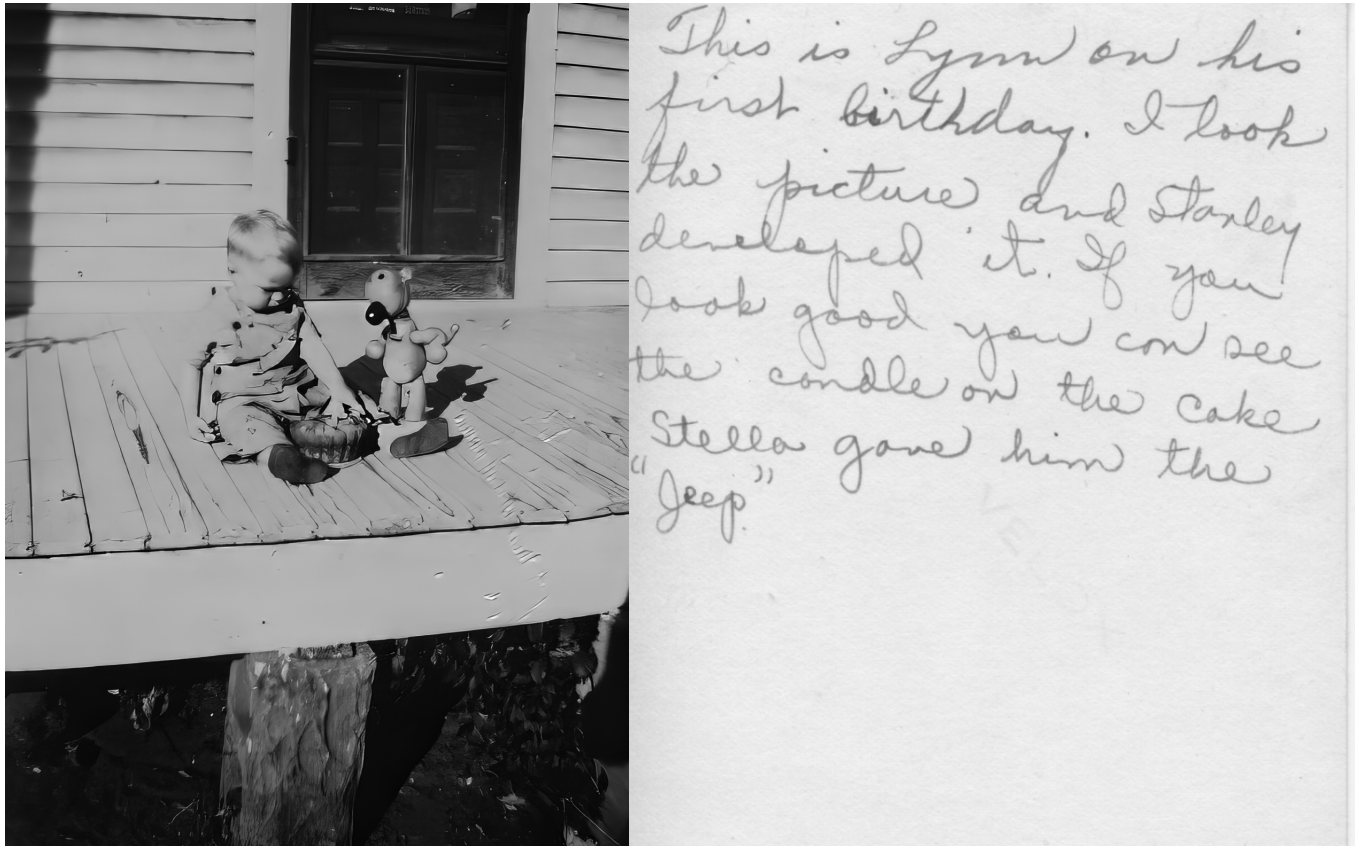 This is Lynn on his
first birthday. I took
the picture and Stanley
developed it. If you
look good you can see
the candle on the cake
Stella gave him the
"Jeep."